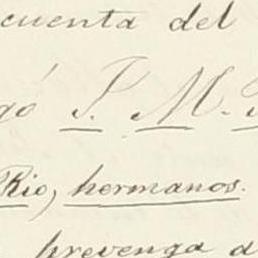 cuenta del
gó J. M.
Rio, hermanos.
prevenga a